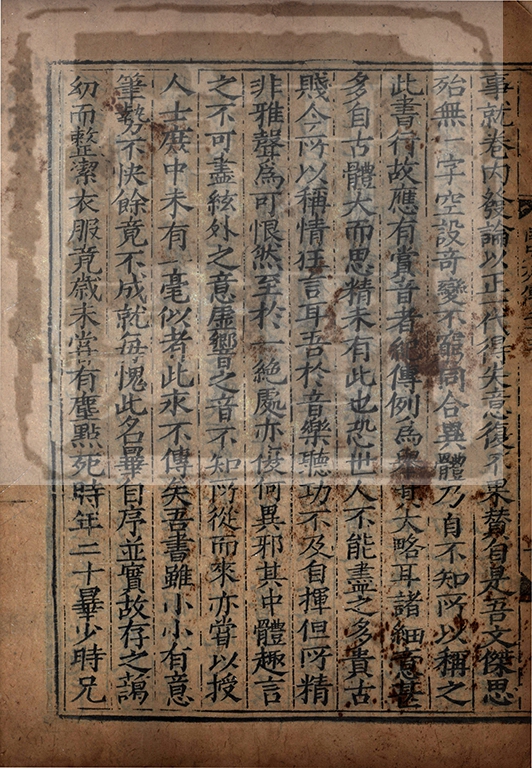 事就卷內發論以正一代得失意復不果贊自是吾文傑思
殆無一字空設奇變不窮同合異體乃自不知所以稱之
此書行故應有賞音者紀傳例為舉其大略耳諸細意甚
多自古體大而思精未有此也恐世人不能盡之多貴古
賤今所以稱情狂言耳吾於音樂聽功不及自揮但所精
非雅聲為可恨然至於一絶處亦復何異邪其中體趣言
之不可盡絃外之意虛響之音不知所從而來亦嘗以授
人士庶中未有一毫似者此永不傳矣吾書雖小小有意
筆勢不快餘竟不成就每愧此名曅自序並實故存之藹
幼而整潔衣服竟歲未嘗有塵點死時年二十曅少時兄